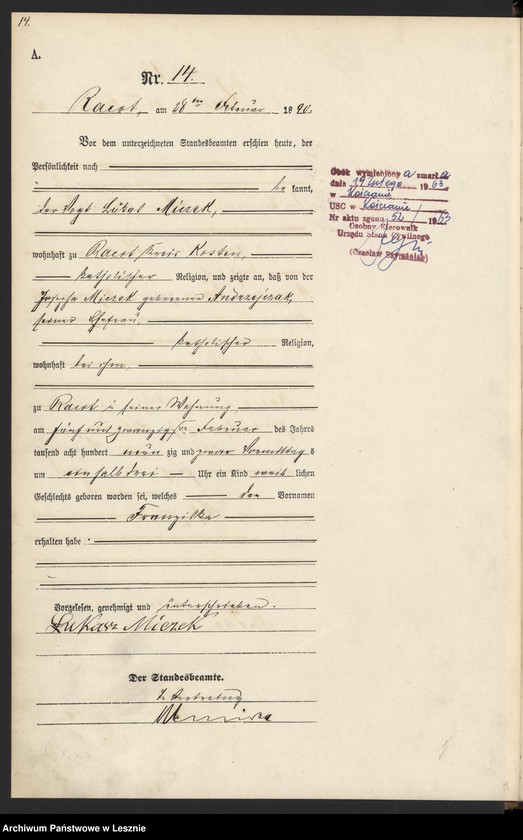 14.
A.
Nr. 14.
Racot, am 28ten Februar 1890.
Vor dem unterzeichneten Standesbeamten erschien heute, der
Persönlichkeit nach
be kannt,
der Vogt Lukas Miezek,
wohnhaft zu Racot, Kreis Kosten,
katholischer Religion, und zeigte an, daß von der
Josepha Miezek geborenen Andrzejczak,
seiner Ehefrau,
katholischer Religion,
wohnhaft bei ihm,
zu Racot in seiner Wohnung,
am fünf und zwanzigsten Februar des Jahres
tausend acht hundert neun zig und zwar Vormittags
um ein halb drei Uhr ein Kind weib lichen
Geschlechts geboren worden sei, welches den Vornamen
Franziska
erhalten habe.
Vorgelesen, genehmigt und unterschrieben.
Łukasz Miezek
Der Standesbeamte.
In Vertretung
Obok wymieniony a zmarł a
dnia 19 lutego 19 63
w Kościanie
USC w Kościanie
Nr aktu zgonu 52 / 1963
Kierownik
Urzędu Stanu Cywilnego
(Czesław Szymaniak)
Archiwum Państwowe w Lesznie